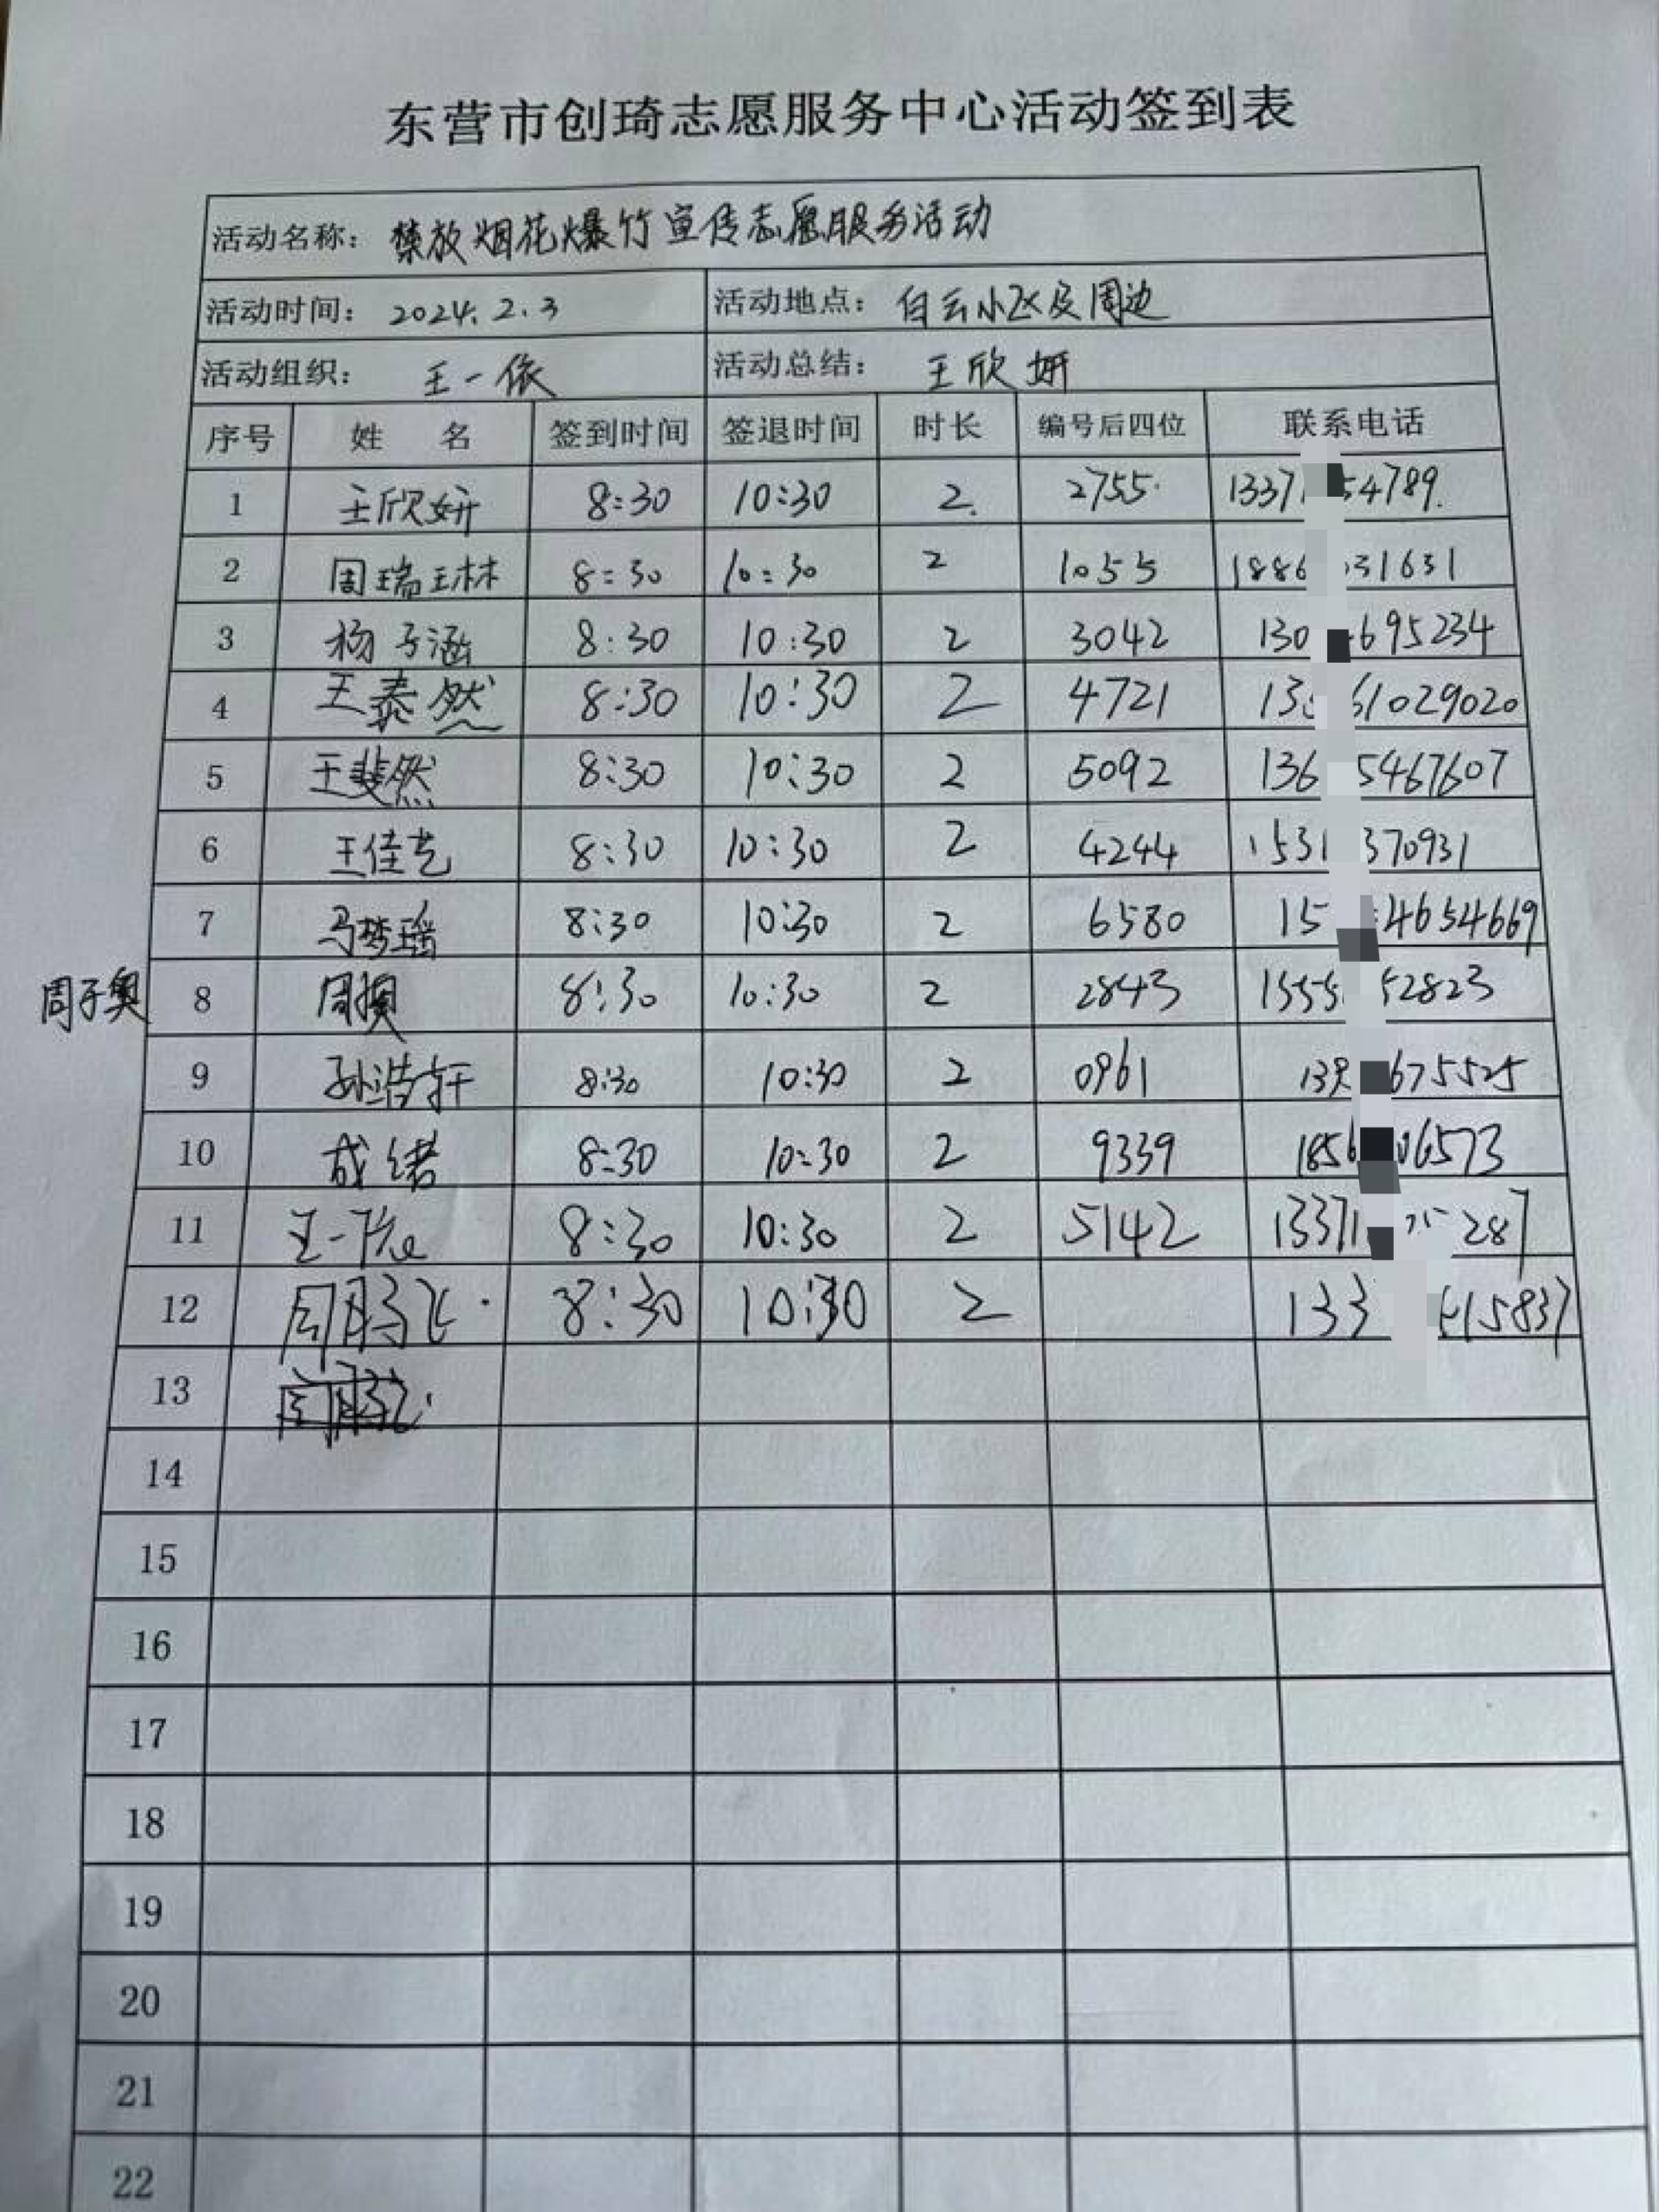 东营市创琦志愿服务中心活动签到表
活动名称：禁放烟花爆竹宣传志愿服务活动
活动时间：2024.2.3 活动地点：白云小区及周边
活动组织：王一依 活动总结：王欣妍
序号 姓名 签到时间 签退时间 时长 编号后四位 联系电话
1 王欣妍 8:30 10:30 2. 2755. 1337 54789.
2 周瑞琳 8:30 10:30 2 1055 1886 31631
3 杨子涵 8:30 10:30 2 3042 130 695234
4 王泰然 8:30 10:30 2 4721 13 61029020
5 王斐然 8:30 10:30 2 5092 136 5467607
6 王佳艺 8:30 10:30 2 4244 1531 370931
7 马梦瑶 8:30 10:30 2 6580 15 4654669
周子奥 8 8:30 10:30 2 2843 1555 52823
9 孙浩轩 8:30 10:30 2 0961 675525
10 成绪 8:30 10:30 2 9339 1856 06573
11 王一依 8:30 10:30 2 5142 13371 287
12 周鹏飞. 8:30 10:30 2 133 15837
13
14
15
16
17
18
19
20
21
22